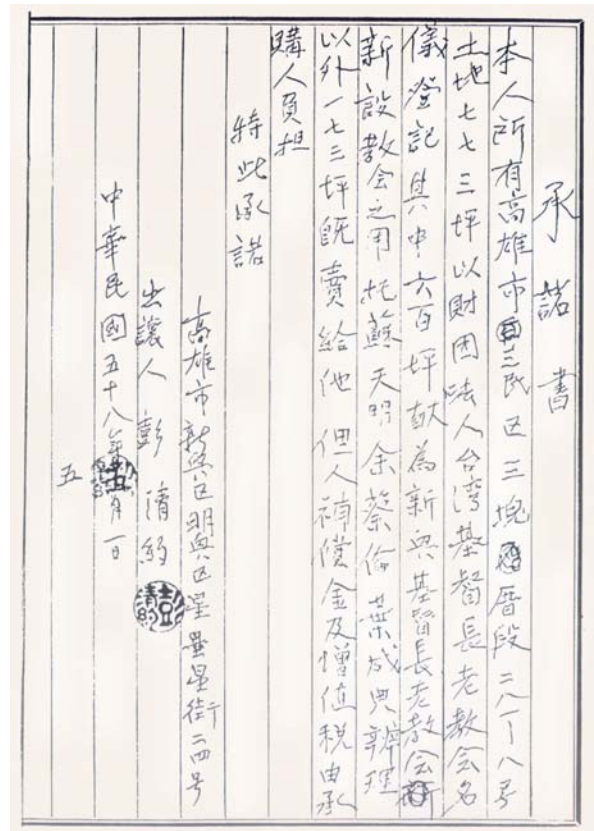 承諾書
本人所有高雄市三民区三塊厝段二八一八号
土地七七三坪以財団法人台湾基督長老教会名
儀登記其中六百坪献為新興基督長老教会
新設教会之用托蘇天明余蔡倫葉成典辦理
以外一七三坪既賣給他佃人補償金及增值稅由承
購人負担
特此承諾
高雄市新興区明興区星星街二四号
出讓人彭清約
中華民國五十八年五月一日
五